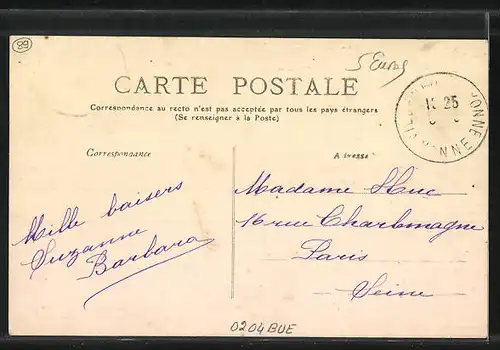 89
5 Euros
CARTE POSTALE
Correspondance au recto n'est pas acceptée par tous les pays étrangers
(Se renseigner à la Poste)
Correspondance
Adresse
18 25
YONNE
Mille baisers
Suzanne
Barbara
Madame Huc
16 rue Charlemagne
Paris
Seine
0204BUE